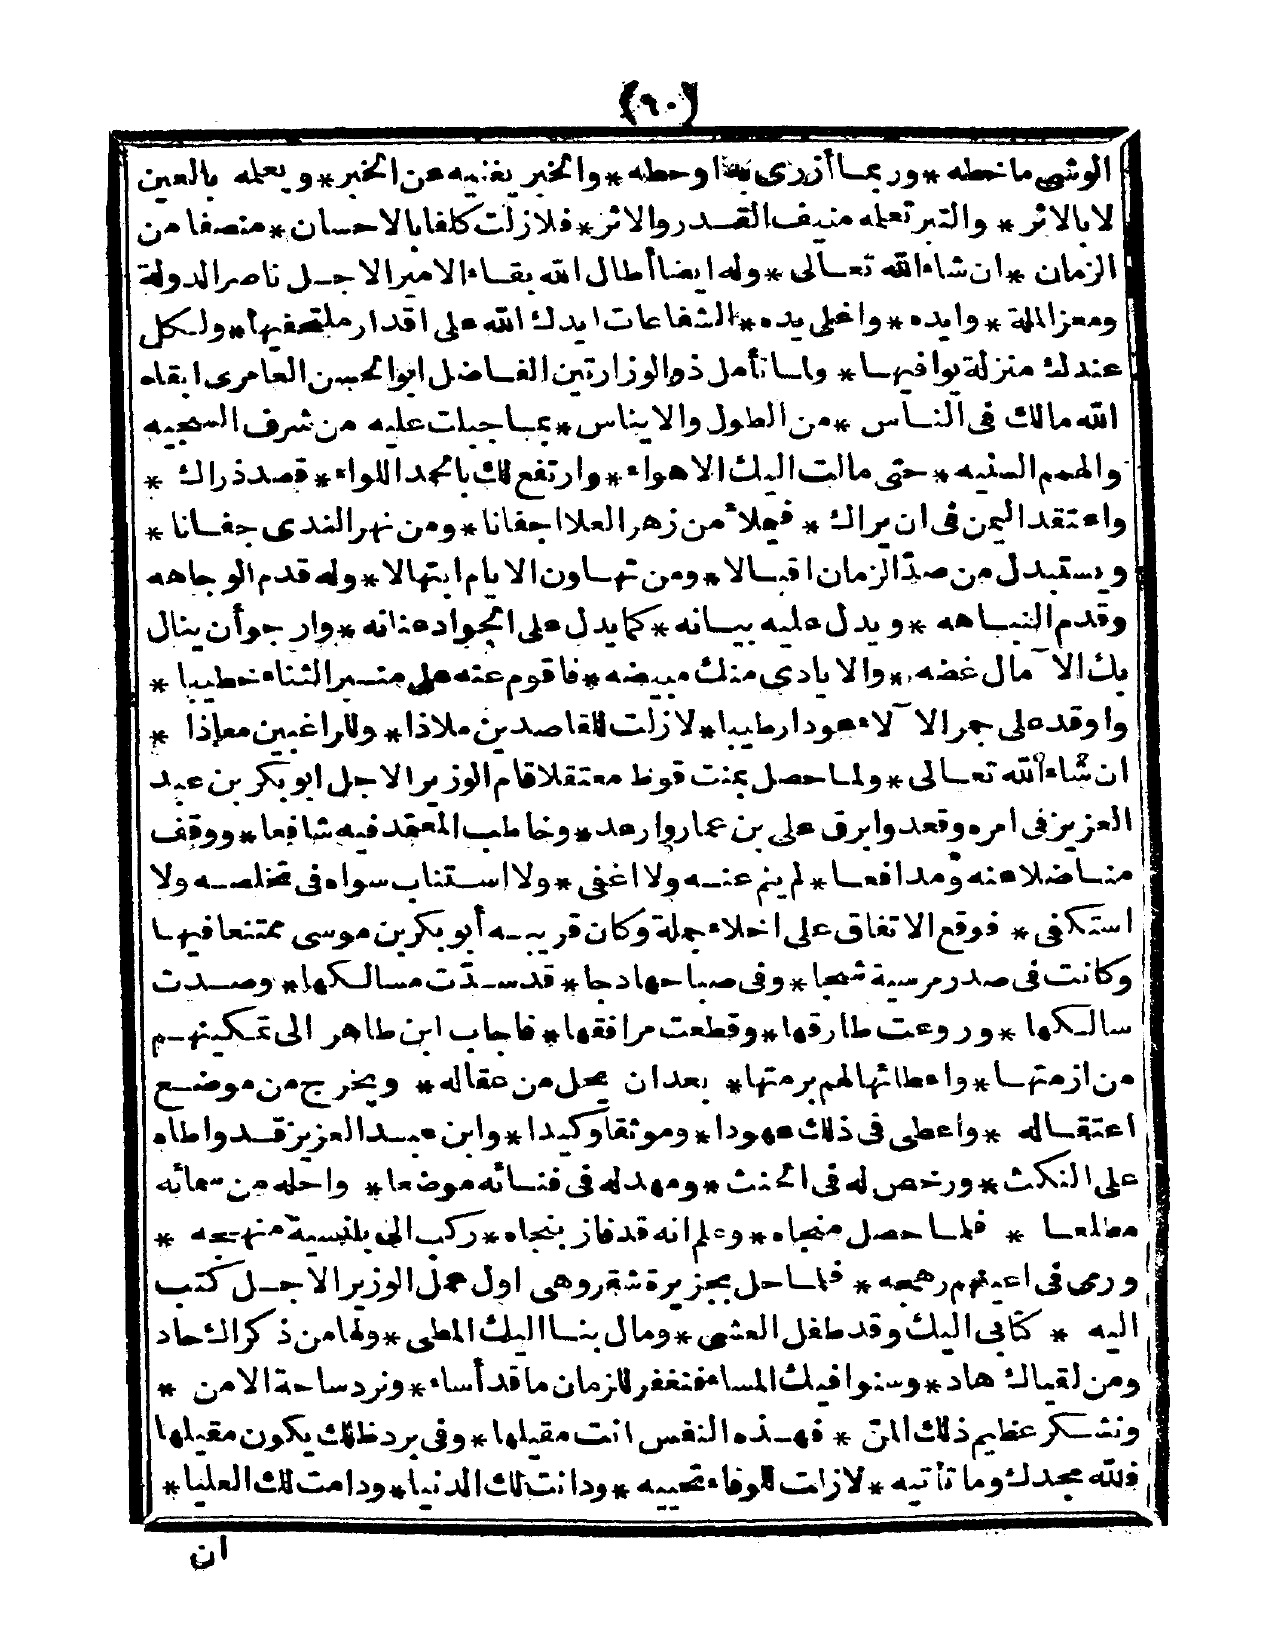 (٦٠)
الوشى ما خطه * وربما أزرى به اوحطه * والخبر يغنيه عن الخبر * ويعمله بالعين
لا بالاثر * والتبر تعمله منيف القدر والاثر * فلا زلت كلفا بالاحسان * منصفا من
الزمان * ان شاء الله تعالى * وله ايضا أطال الله بقاء الامير الاجل ناصر الدولة
ومعز الملة * وايده * واعلى يده * الشفاعات ايدك الله على اقدار ملتحفيها * ولكل
عندك منزلة يوافيها * ولما تأمل ذو الوزارتين الفاضل ابو الحسن العامرى ابقاه
الله مالك فى الناس * من الطول والايناس * بما جبلت عليه من شرف السجيه
والهمم السنيه * حتى مالت اليك الاهواء * وارتفع لك بالمجد اللواء * قصد ذراك *
واعتقد اليمن فى ان يراك * فيملأ من زهر العلا اجفانا * ومن نهر الندى جفانا *
ويستبدل من صد الزمان اقبالا * ومن تهاون الايام ابتهالا * وله قدم الوجاهه
وقدم النباهه * ويدل عليه بيانه * كما يدل على الجواد عنانه * وارجو أن ينال
بك الآمال غضه * والايادى منك مبيضه * فاقوم عنه على منبر الثناء خطيبا *
واوقد على جمر الآلاء عودا رطيبا * لا زلت للقاصدين ملاذا * وللراغبين معاذا *
ان شاء الله تعالى * ولما حصل بمنت قوط معتقلا قام الوزير الاجل ابو بكر بن عبد
العزيز فى امره وقعد وابرق على بن عمار وارعد * وخاطب المعتمد فيه شافعا * ووقف
مناضلا عنه ومدافعا * لم ينم عنه ولا اغفى * ولا استناب سواه فى تخلصه ولا
استكفى * فوقع الاتفاق على اخلاء جملة وكان قريبه أبو بكر بن موسى ممتنعا فيها
وكانت فى صدر مرسية شجا * وفى صباحها دجا * قد سدّت مسالكها * وصدت
سالكها * وروعت طارقها * وقطعت مرافقها * فاجاب ابن طاهر الى تمكينهم
من ازمتها * واعطائها لهم برمتها * بعد ان يحل من عقاله * ويخرج من موضع
اعتقاله * واعطى فى ذلك عهودا * وموثقا وكيدا * وابن عبد العزيز قد واطاه
على النكث * ورخص له فى الحنث * ومهد له فى فنائه موضعا * واحله من سمائه
مطلعا * فلما حصل منجاه * وعلم انه قد فاز بنجاه * ركب الى بلنسية منهجه *
ورمى فى اعينهم رهجه * فلما حل بجزيرة شقر وهى اول عمل الوزير الاجل كتب
اليه * كتابى اليك وقد طفل العشى * ومال بنا اليك المطى * ولها من ذكراك حاد
ومن لقياك هاد * وسنوافيك المساء فنغفر للزمان ما قد أساء * ونرد ساحة الامن *
ونشكر عظيم ذلك المن * فهذه النفس انت مقيلها * وفى برد ظلك يكون مقيلها
فلله مجدك وما تأتيه * لازلت للوفاء تحييه * ودانت لك الدنيا * ودامت لك العليا *
ان